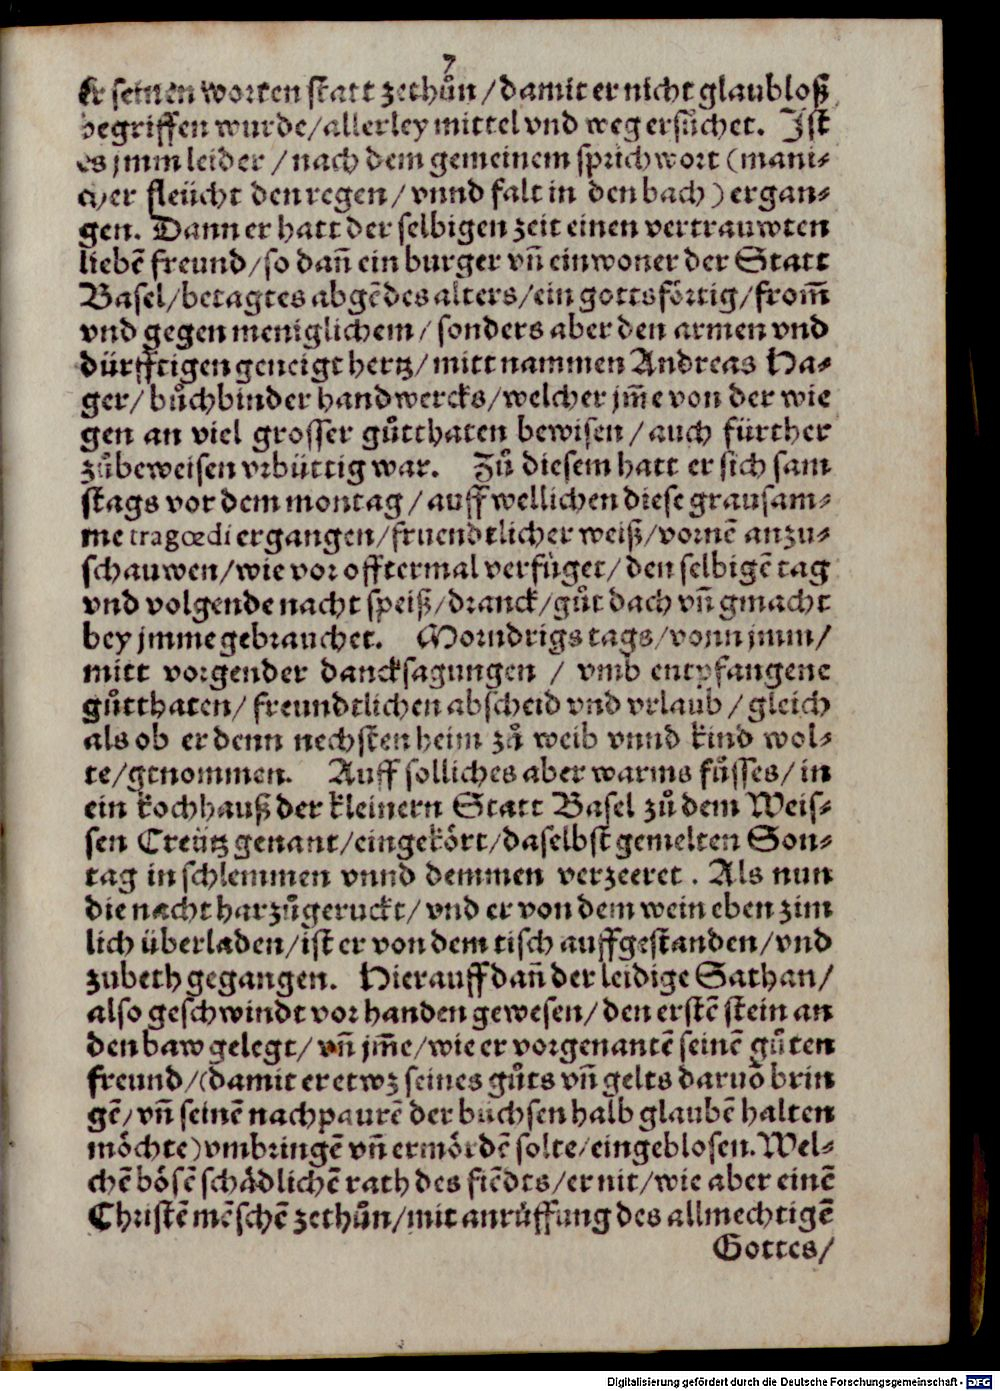 7
Er seinen worten statt zethůn/damit er nicht glaubloß
begriffen wurde/allerley mittel vnd weg ersůchet. Ist
es jmm leider/nach dem gemeinem sprichwort (mani-
cher fleücht den regen/vnnd falt in den bach) ergan-
gen. Dann er hatt der selbigen zeit einen vertrauwten
liebẽ freund/so dañ ein burger vñ einwoner der Statt
Basel/betagtes abgẽdes alters/ein gottsförtig/from̃
vnd gegen meniglichem/sonders aber den armen vnd
dürfftigen geneigt hertz/mitt nammen Andreas Ha-
ger/bůchbinder handwercks/welcher jm̃e von der wie
gen an viel grosser gůtthaten bewisen/auch fürther
zůbeweisen vrbüttig war. Zů diesem hatt er sich sam
stags vor dem montag/auff wellichen diese grausam-
me tragœdi ergangen/fruendtlicher weiß/vornẽ anzu-
schauwen/wie vor offtermal verfüget/den selbigẽ tag
vnd volgende nacht speiß/dranck/gůt dach vñ gmacht
bey jmme gebrauchet. Morndrigs tags/vonn jmm/
mitt vorgender dancksagungen / vmb entpfangene
gůtthaten/freundtlichen abscheid vnd vrlaub/gleich
als ob er denn nechsten heim zů weib vnnd kind wol-
te/genommen. Auff solliches aber warms fůsses/in
ein kochhauß der kleinern Statt Basel zů dem Weis-
sen Creütz genant/eingekört/daselbst gemelten Son-
tag in schlemmen vnnd demmen verzeeret. Als nun
die nacht harzůgeruckt/vnd er von dem wein eben zim
lich überladen/ist er von dem tisch auffgestanden/vnd
zubeth gegangen. Hierauff dañ der leidige Sathan/
also geschwindt vorhanden gewesen/den erstẽ stein an
den baw gelegt/vñ jm̃e/wie er vorgenantẽ seinẽ gůten
freund/(damit er etwz seines gůts vñ gelts daruõ brin
gẽ/vñ seinẽ nachpaurẽ der büchsen halb glaubẽ halten
möchte) vmbringẽ vñ ermördẽ solte/eingeblosen. Wel-
chẽ bösẽ schädlichẽ rath des fiẽdts/er nit/wie aber einẽ
Christẽ mẽschẽ zethůn/mit anrůffung des allmechtigẽ
Gottes/
Digitalisierung gefördert durch die Deutsche Forschungsgemeinschaft - DFG